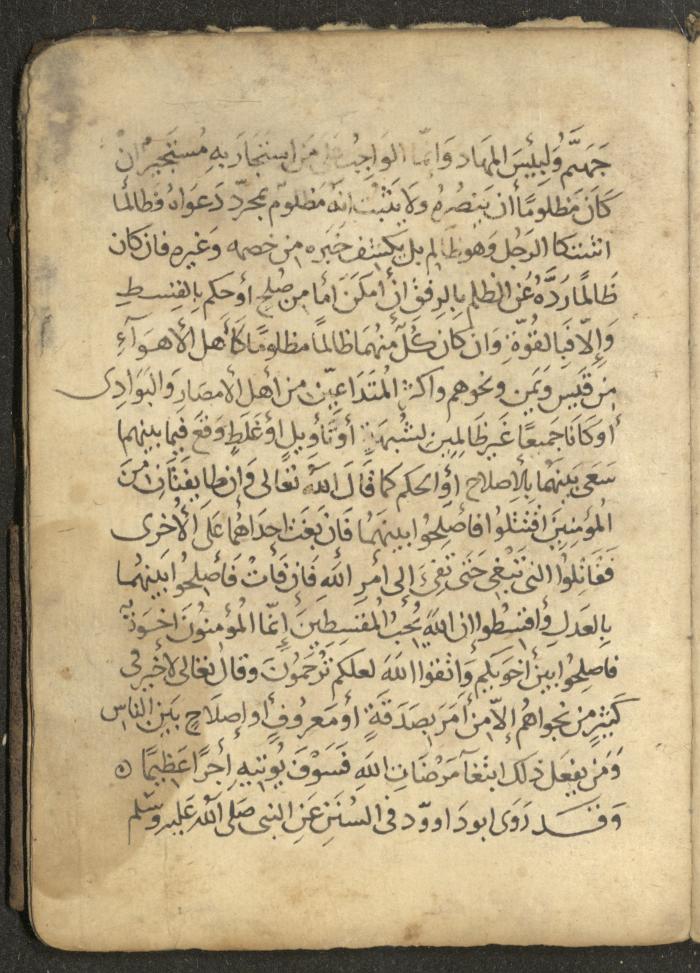 جَهَنَّم وَلَبِئْسَ المِهَاد وَإنمّا الوَاجِبُ عَلَى مَن اسْتَجَارَ بِهِ مُسْتَجِيرٌ إنْ
كَانَ مَظْلُومًا أن يَنصُرَهُ وَلَا يَثْبُتُ أنَّهُ مَظلوم بمجرّد دَعوَاهُ فطَالمَا
اشتكا الرَجُل وَهو ظالم بل يَكشف خبَره من خصمه وَغيره فان كان
ظَالمًا رَدَّهُ عَن الظلم بالرفق إنْ أمكَنَ أمَا من صُلح أو حكم بالقِسطِ
وَإلّا فبَالقُوّة وَان كان كُلّ منهُما ظالماً مظلومًا كَأهل الأهوَآءِ
من قَيس وَيَمَن ونحوهم واكثر المُتَدَاعِيِّن من أهل الأمصَار وَالبَوَادِى
أو كَانا جَميعًا غَير ظَالِمِين لشُبهَة أو تَأوِيلٍ أو غَلَطٍ وَقَعَ فيما بينهما
سَعَى بَينَهُما بالإصلاح أو الحكم كما قَالَ اللهُ تعَالى وَان طايفتَان منَ
المُؤمنِينَ اقتَتلُوا فأصلِحوا بينهمَا فَان بَغَت احدَاهُما عَلَى الأخرى
فَقَاتِلُوا التى تَبْغِى حَتى تَفِىءَ إلى أمرِ اللهِ فَان فَأت فَأصلحوا بَينهما
بِالعَدلِ وأقسطُوا ان اللهَ يُحبُ المُقسِطِينَ إنّما المُؤمنُونَ اخوَةٌ
فاصلِحُوا بين أخوَيكم وَاتقوا اللهَ لعلكم تُرحَمُونَ وقال تعَالى لا خَير فى
كَثيرٍ من نجواهُم إلّا من أمَرَ بصَدَقَةٍ أو مَعروُفٍ أو إصلَاحٍ بَين الناس
وَمَن يفعَل ذلك ابتغَآ مَرضَات اللهِ فَسَوْفَ يُوتيهِ أجرًا عَظيمًا ۞
وَقَد رَوَى ابو دَاوود فى السُنَن عَن النبى صَلى الله عَليه وسَلم